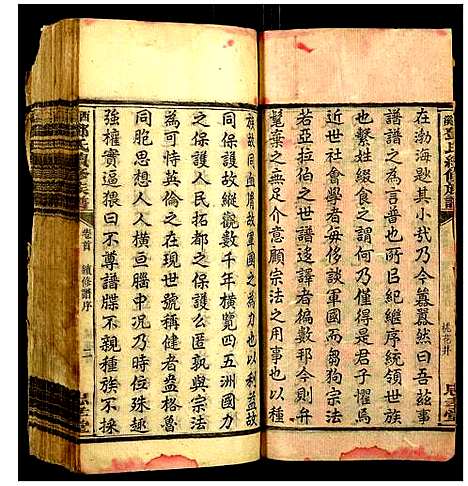 在渤海尟其小哉乃今囂囂然曰吾茲事
譜譜之為言普也所㠯紀継序統領世族
也繫姓綴食之謂何乃僅得是君子懼焉
近世社會學者毎侈談軍國而芻狗宗法
若亞拉伯之世譜逡巡者編數邦今則弁
髦棄之無足介意顧宗法之用事也以種
族故而血膚故軍國之為力也以利益故
同保護故縱觀數千年橫覽四五洲國力
之保護人民拓都之保護公匿孰與宗法
為可恃英倫之在現世號稱健者盎格魯
同胞思想人人橫亘腦中况乃時位殊趣
強權實逼猥曰不尊譜牒不親種族不採
西
鄧氏續修族譜
卷首
續修譜序
二
桃花井